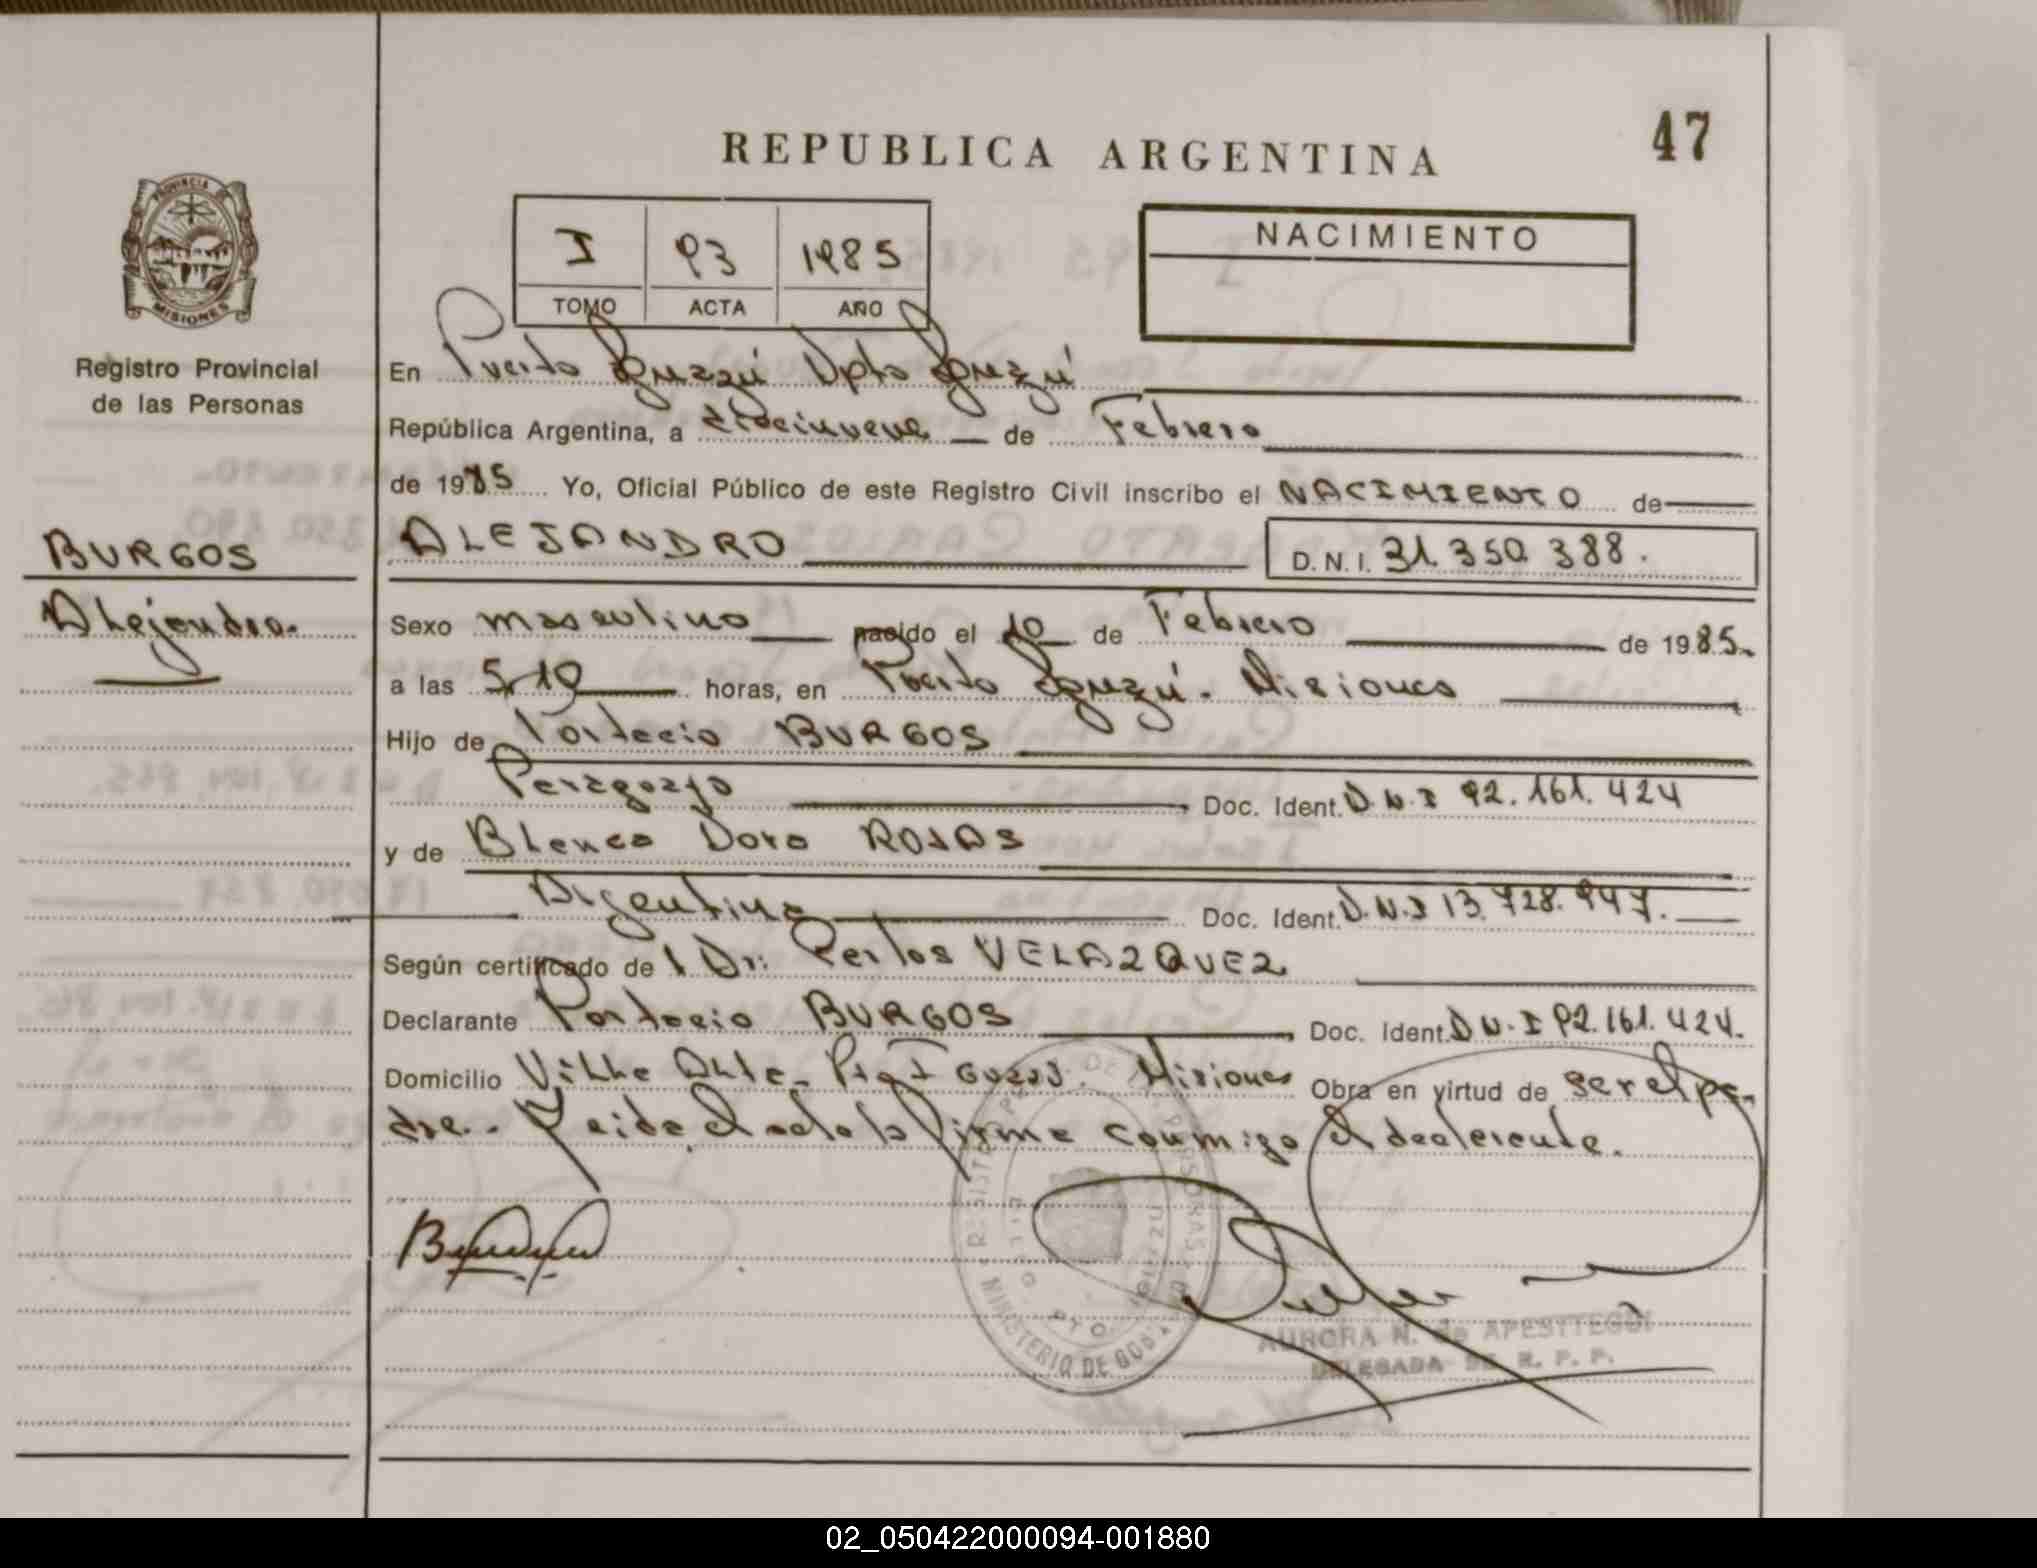 47
REPUBLICA ARGENTINA
PROVINCIA
MISIONES
Registro Provincial
de las Personas
I 93 1985
TOMO ACTA AÑO
NACIMIENTO
En Puerto Iguazú Dpto Iguazú
República Argentina, a diecinueve de Febrero
de 1985 Yo, Oficial Público de este Registro Civil inscribo el NACIMIENTO de
BURGOS
Alejandro.
ALEJANDRO D.N.I. 31.350.388.
Sexo masculino nacido el 10 de Febrero de 1985.
a las 5,10 horas, en Puerto Iguazú. Misiones
Hijo de BURGOS
Doc. Ident. D.N.I 92.161.424
y de Blanca Dora ROJAS
Argentina Doc. Ident. D.N.I 13.728.947.
Según certificado de l Dr: Carlos VELAZQUEZ
Declarante BURGOS Doc. Ident. D N.I 92.161.424.
Domicilio Villa Alte. Misiones Obra en virtud de ser el pa-
dre.- Leida el acta la firma conmigo el declarante.
MINISTERIO DE GOB
AURORA N. de APESTTEGUI
DELEGADA DE R. P. P.
02_050422000094-001880